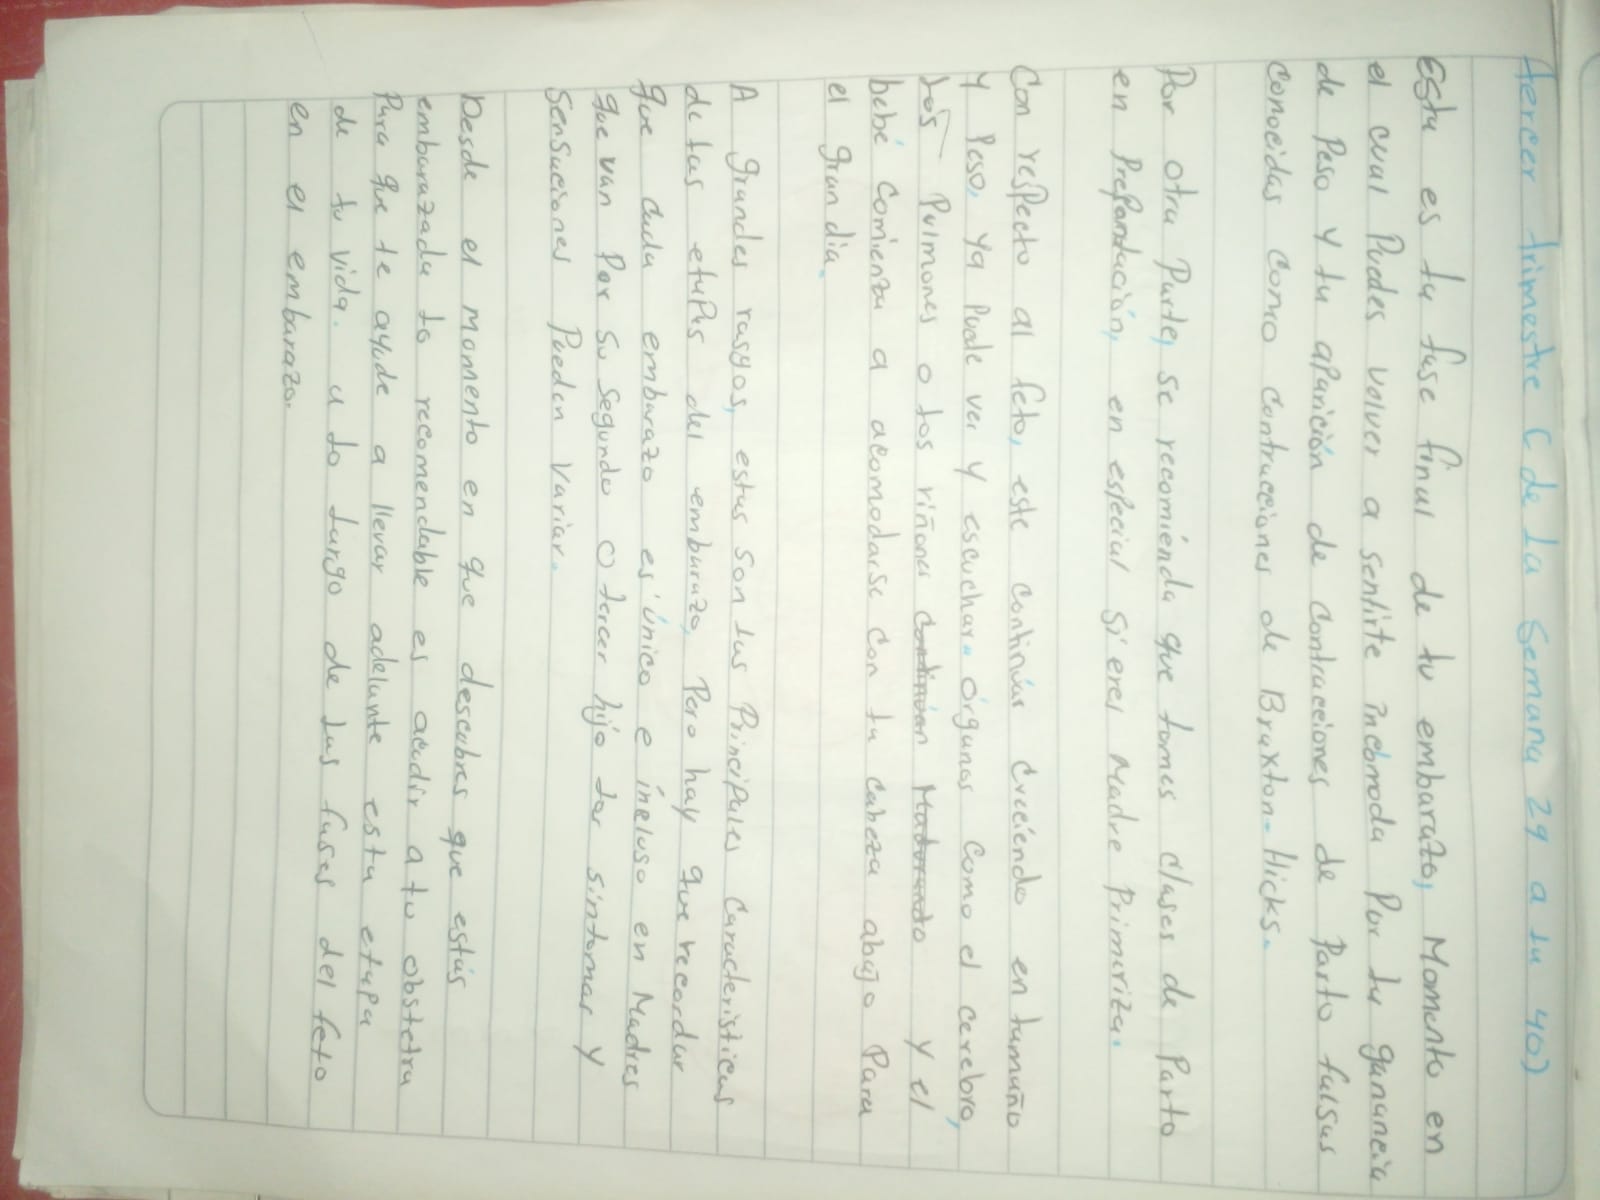 tercer trimestre (de La Semana 29 a La 40)
Esta es la fase final de tu embarazo, Momento en
el cual Puedes volver a sentirte incómoda Por La ganancia
de Peso y La aparición de contracciones de Parto falsas
conocidas como contracciones de Braxton-Hicks.
Por otra Parte, se recomiénda que tomes clases de Parto
en Preparación, en especial Si eres Madre Primeriza.
Con respecto al feto, este continúa creciéndo en tamaño
y Peso, ya Puede ver y escuchar. órganos como el cerebro,
Los Pulmones o Los riñones continúan Madurando y el
bebé Comienza a acomodarse con La cabeza abajo Para
el gran día.
A grandes rasgos, estas son Las Principales Características
de Las etapas del embarazo, Pero hay que recordar
que cada embarazo es único e incluso en Madres
que van Por su segundo o tercer hijo Los sintomas y
Sensaciones Pueden Variar.
Desde el momento en que descubres que estás
embarazada Lo recomendable es acudir a tu obstetra
Para que te ayude a llevar adelante esta etapa
de tu vida. a Lo Largo de Las fases del feto
en el embarazo.